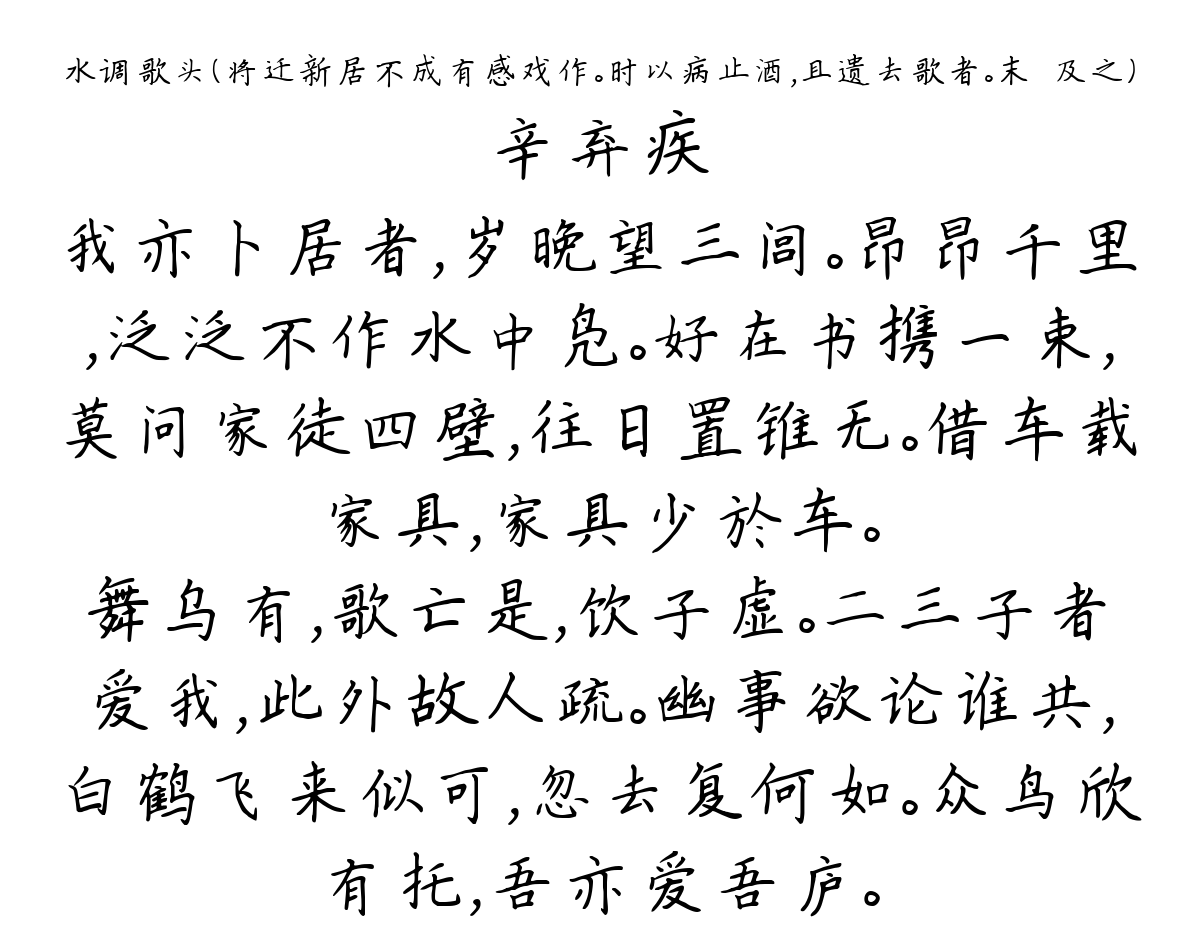 水调歌头(将迁新居不成有感戏作。时以病止酒,且遣去歌者。末 及之)
辛弃疾
我亦卜居者,岁晚望三闾。昂昂千里
,泛泛不作水中凫。好在书携一束,
莫问家徒四壁,往日置锥无。借车载
家具,家具少於车。
舞乌有,歌亡是,饮子虚。二三子者
爱我,此外故人疏。幽事欲论谁共,
白鹤飞来似可,忽去复何如。众鸟欣
有托,吾亦爱吾庐。